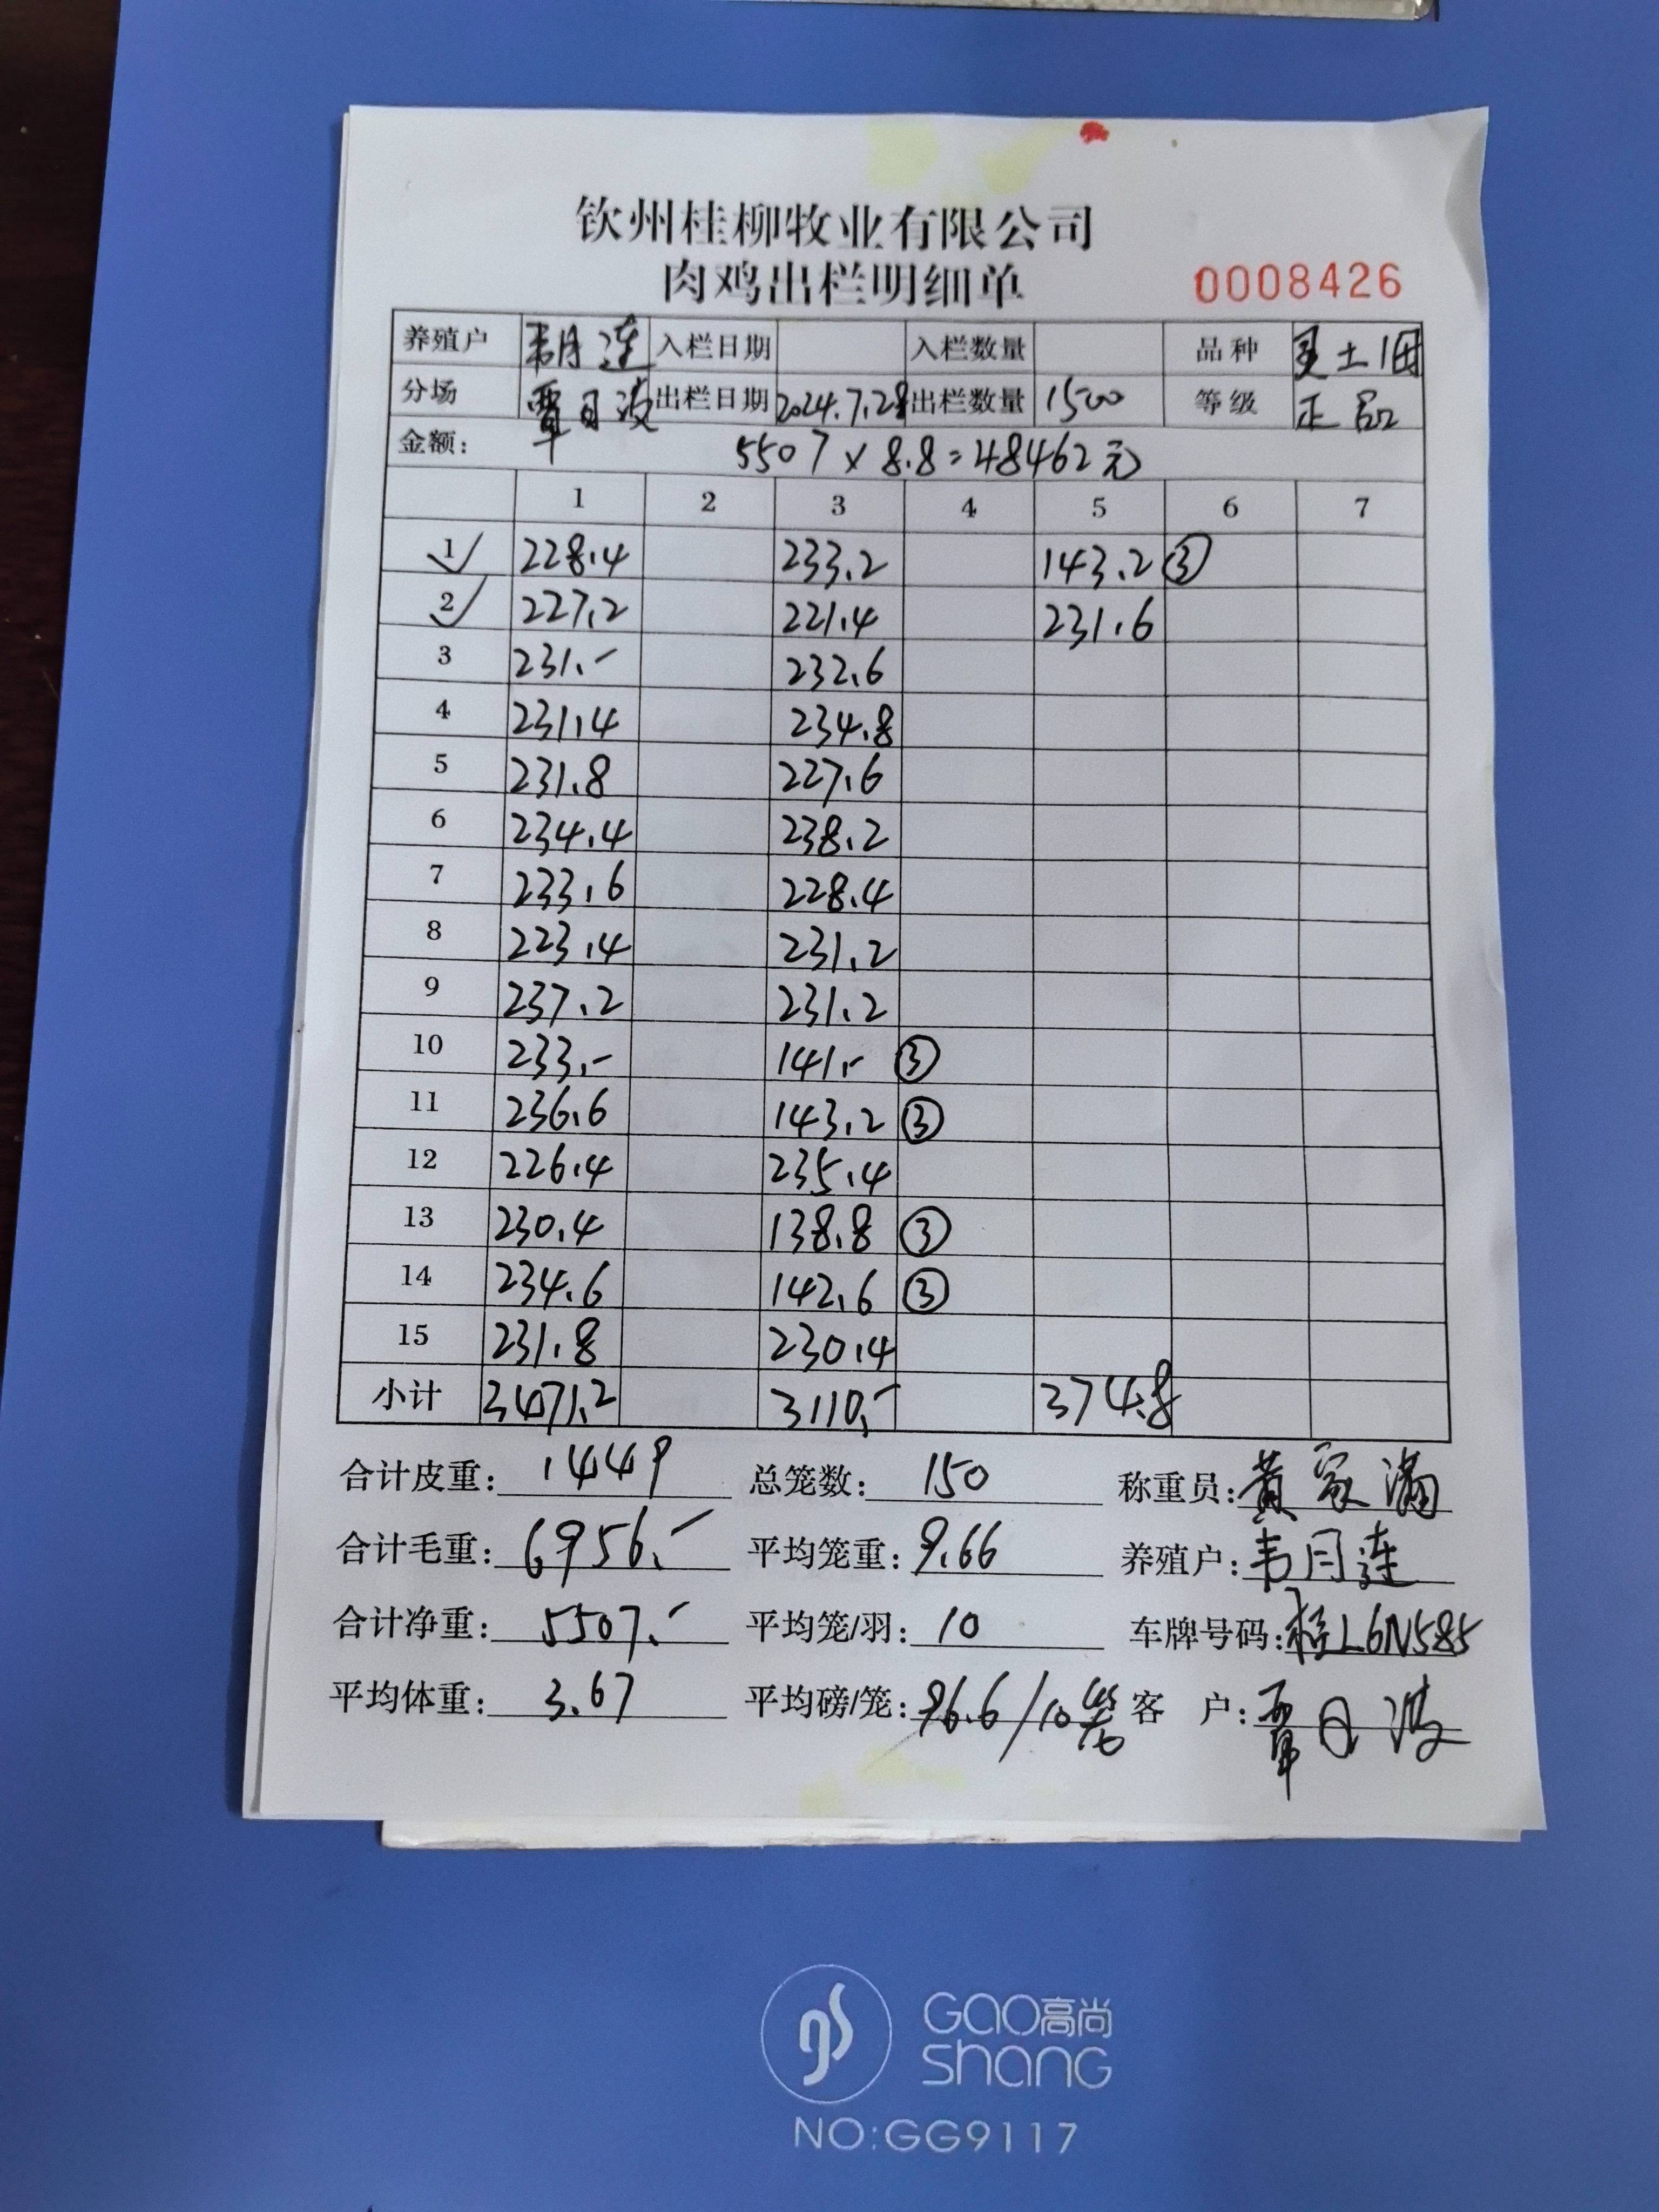 钦州桂柳牧业有限公司
肉鸡出栏明细单 0008426
养殖户 韦月连 入栏日期 入栏数量 品种 土1
分场 覃日波 出栏日期 2024.7.28 出栏数量 1500 等级 正品
金额: 5507×8.8=48462元
1 2 3 4 5 6 7
1 ✓ 228.4 233.2 143.2 ③
2 ✓ 227.2 221.4 231.6
3 231.- 232.6
4 231.4 234.8
5 231.8 227.6
6 234.4 238.2
7 233.6 228.4
8 223.4 231.2
9 237.2 231.2
10 233.- 141.- ③
11 236.6 143.2 ③
12 226.4 235.4
13 230.4 138.8 ③
14 234.6 142.6 ③
15 231.8 230.4
小计 3471.2 3110.- 374.8
合计皮重: 1449 总笼数: 150 称重员: 黄家满
合计毛重: 6956.- 平均笼重: 9.66 养殖户: 韦月连
合计净重: 5507.- 平均笼/羽: 10 车牌号码: 桂L6N585
平均体重: 3.67 平均磅/笼: 96.6/10笼 客 户: 覃日波
gs GAO高尚
shang
NO:GG9117